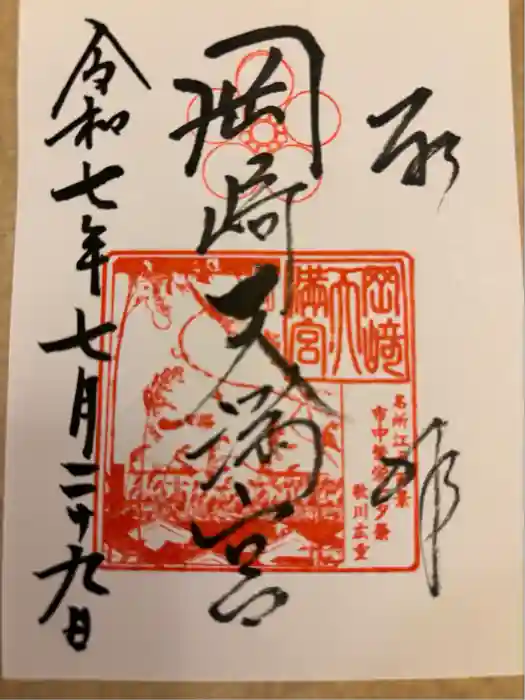 奉拝
岡崎天満宮
岡崎天満宮
名所江戸百景
市中繁栄七夕祭
歌川広重
令和七年七月二十九日